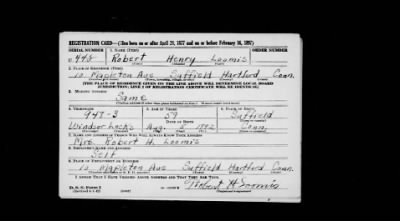 REGISTRATION CARD—(Men born on or after April 28, 1877 and on or before February 16, 1897)
SERIAL NUMBER 1. NAME (Print) ORDER NUMBER
U 442 Robert Henry Loomis
2. PLACE OF RESIDENCE (Print)
10 Mapleton Ave Suffield Hartford Conn.
[THE PLACE OF RESIDENCE GIVEN ON THE LINE ABOVE WILL DETERMINE LOCAL BOARD
JURISDICTION; LINE 2 OF REGISTRATION CERTIFICATE WILL BE IDENTICAL]
3. MAILING ADDRESS
Same
4. TELEPHONE
5. AGE IN YEARS
6. PLACE OF BIRTH
443-3 59 Suffield
DATE OF BIRTH
Windsor Locks Aug. 5 1882 Conn.
7. NAME AND ADDRESS OF PERSON WHO WILL ALWAYS KNOW YOUR ADDRESS
Mrs. Robert H. Loomis
8. EMPLOYER'S NAME AND ADDRESS
Self
9. PLACE OF EMPLOYMENT OR BUSINESS
10 Mapleton Ave Suffield Hartford Conn.
I AFFIRM THAT I HAVE VERIFIED ABOVE ANSWERS AND THAT THEY ARE TRUE.
D. S. S. Form 1
Robert H Loomis